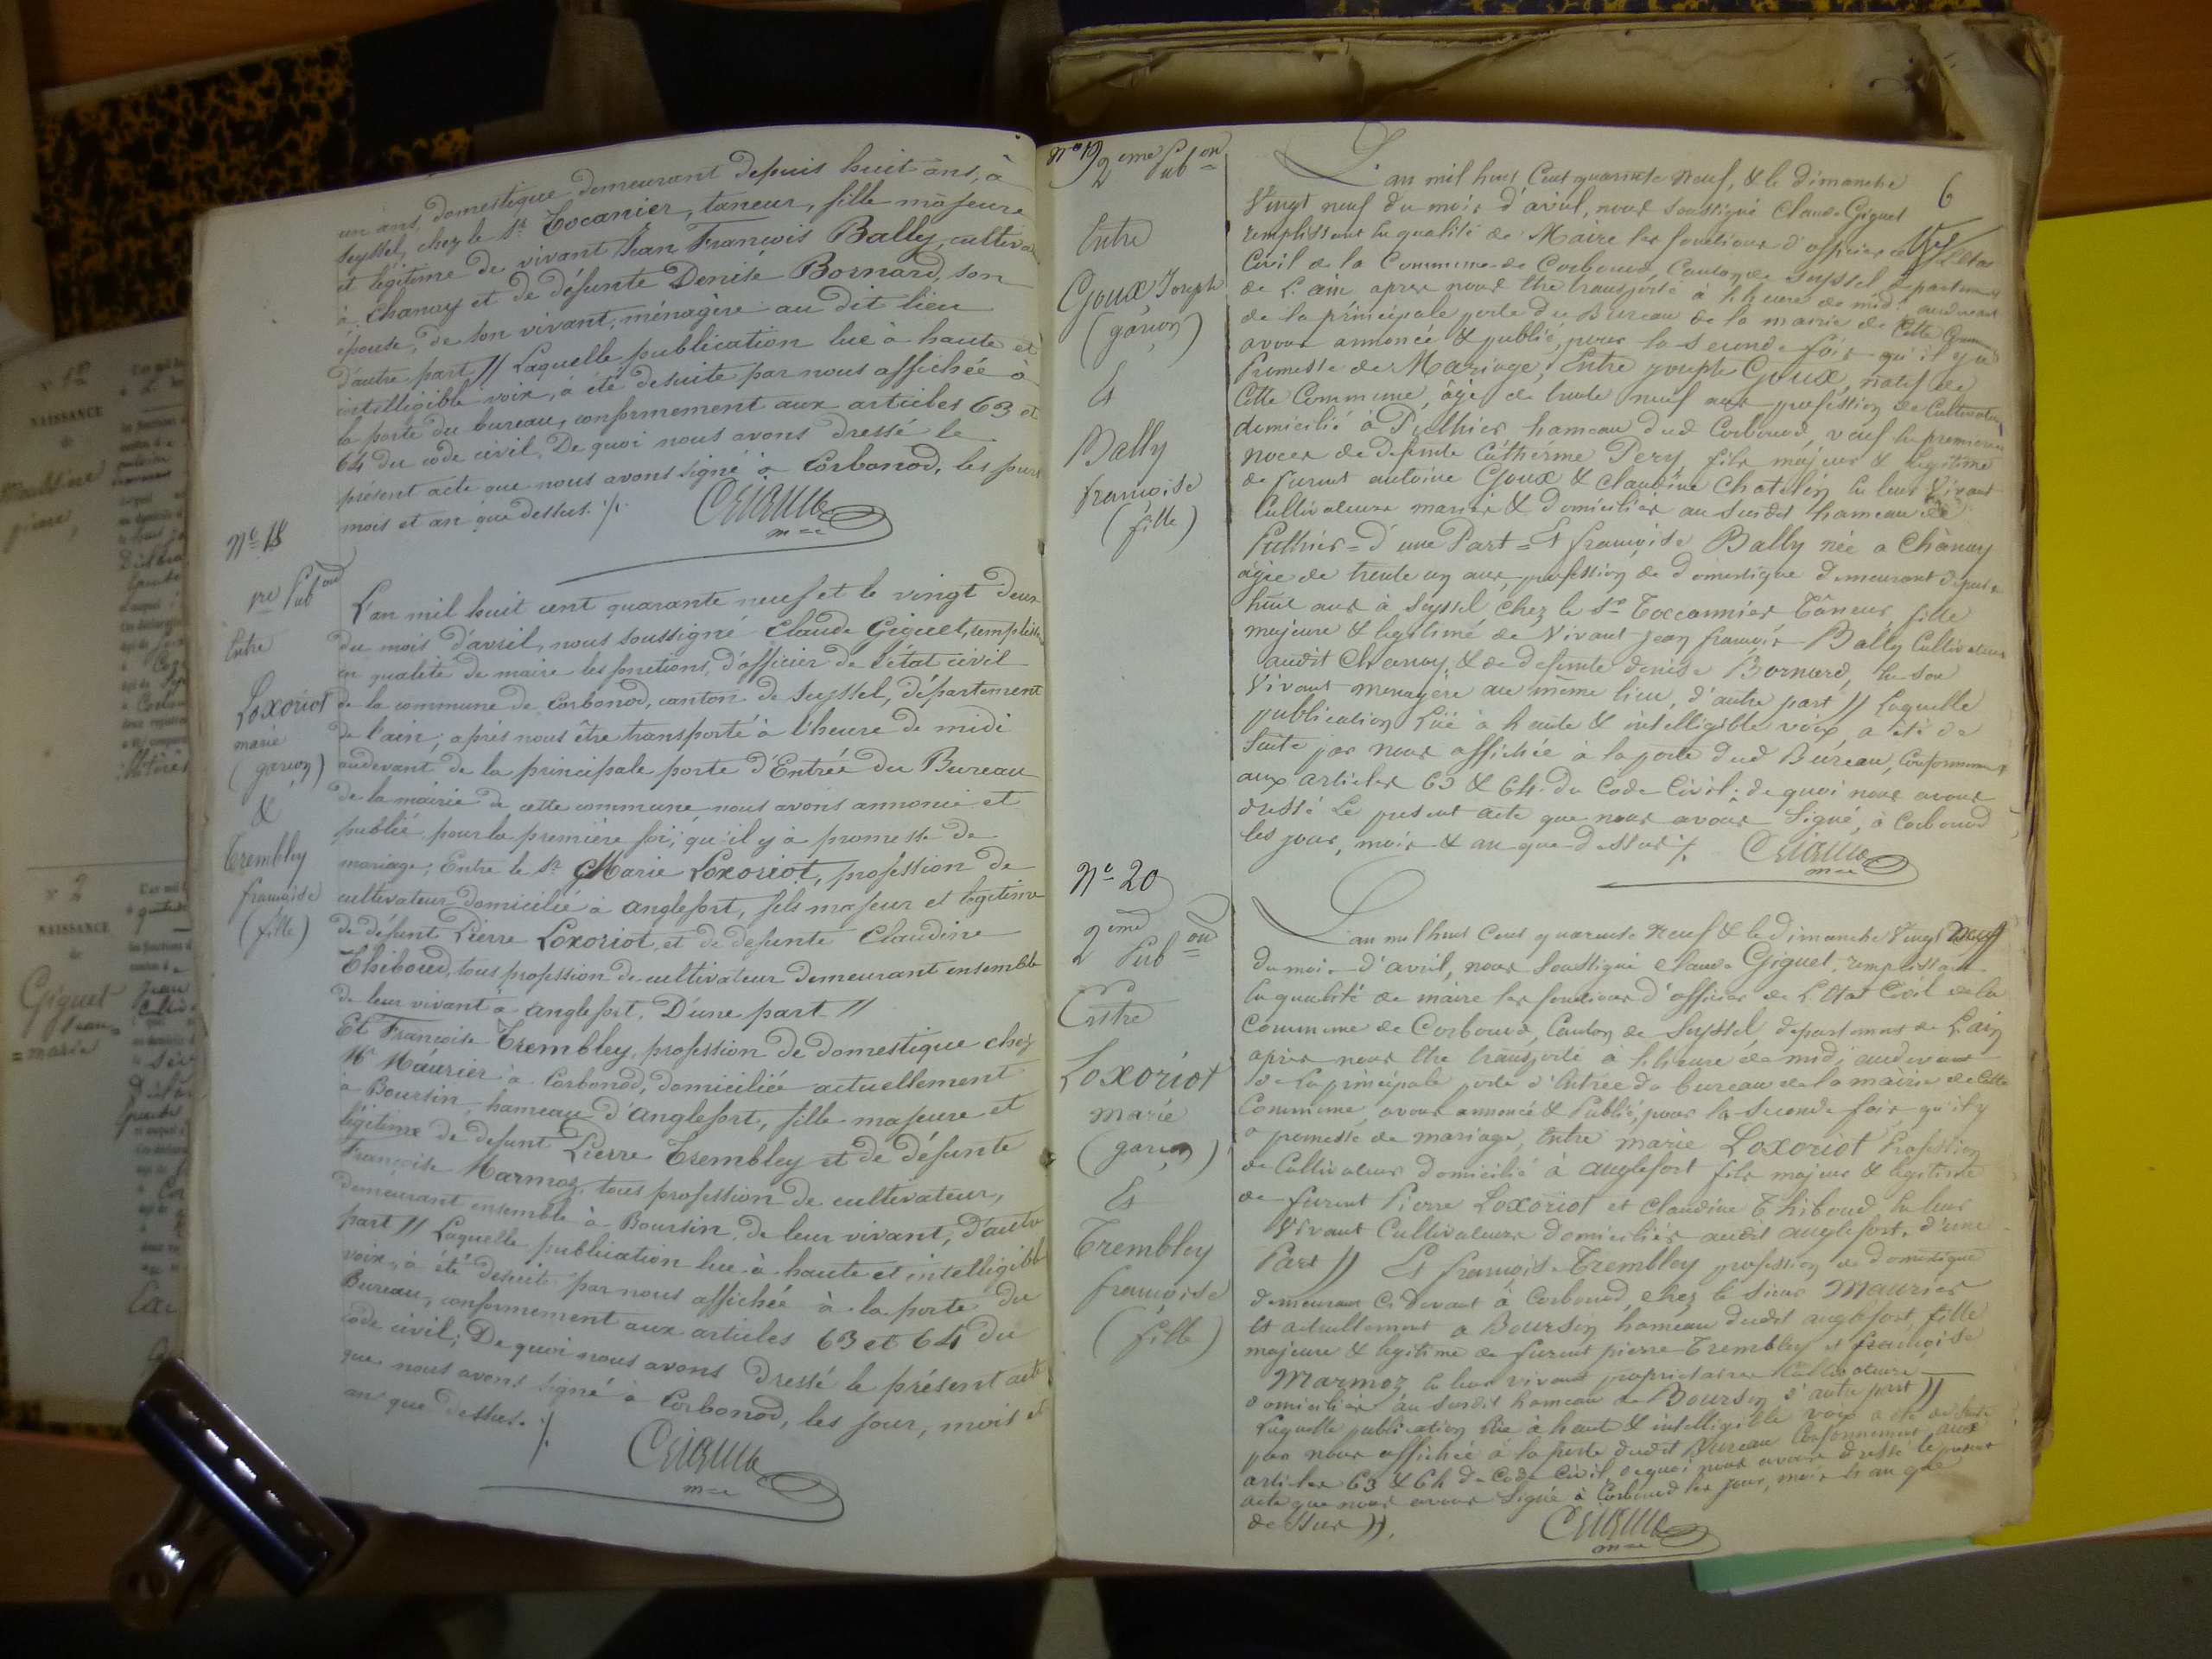 un ans, domestique demeurant depuis huit ans, à
Seyssel, chez le Sr. Tocanier, taneur, fille majeure
et légitime de vivant Jean François Bally, cultiva
à Chanay et de défunte Denise Bornard, son
épouse, de son vivant, ménagère au dit lieu
d'autre part // Laquelle publication lue à haute et
intelligible voix, à été desuite par nous affichée à
la porte du bureau, conformement aux articles 63 et
64 du code civil, De quoi nous avons dressé le
présent acte que nous avons signé à Corbonod, les jour
mois et an que dessus. /.
m=e
No 18
1re Pubon
Entre
Loxoriot
marie
(garçon)
&
Trembley
françoise
(fille)
L'an mil huit cent quarante neuf et le vingt deux
du mois d'avril, nous soussigné Claude Giguet, rempliss
en qualité de maire les fonctions, d'officier de l'état civil
de la commune de Corbonod, canton de Seyssel, département
de l'ain; après nous être transporté à l'heure de midi
audevant de la principale porte d'Entrée du Bureau
de la mairie de cette commune nous avons annoncé et
publié pour la première foi; qu'il y à promesse de
mariage; Entre le Sr Marie Loxoriot, profession de
cultivateur domiciliée à anglefort, fils majeur et légitime
de défunt Pierre Loxoriot, et de defunte Claudine
Thiboud, tous profession de cultivateur demeurant ensemble
de leur vivant à anglefort. D'une part //
Et Françoise Trembley, profession de domestique chez
Mr Maurier à Corbonod, domiciliée actuellement
à Boursin, hameau d'anglefort, fille majeure et
légitime de defunt Pierre Trembley et de défunte
Françoise Marmoz, tous profession de cultivateur,
demeurant ensemble à Boursin, de leur vivant, d'autre
part // Laquelle publication lue à haute et intelligible
voix, à été desuite par nous affichée à la porte du
Bureau, conformement aux articles 63 et 64 du
code civil; De quoi nous avons dressé le présent acte
que nous avons signé à Corbonod, les jour, mois et
an que dessus. /.
m=e
6
No 19
2eme Pubon
Entre
Goux Joseph
(garçon)
Et
Bally
françoise
(fille)
L'an mil huit Cent quarante neuf, & le dimanche
Vingt neuf du mois d'avril, nous soussigné Claude Giguet
remplissant en qualité de Maire les fonctions d'officier de l'Etat
Civil de la Commune de Corbonod, Canton de Seyssel département
de L'ain, après nous être transporté à l'heure de midi audevant
de la principale porte du Bureau de la mairie de Cette Commune
avons annoncé & publié, pour la seconde fois qu'il y a
Promesse de Mariage; Entre joseph Goux, natif de
Cette Commune, âgé de trente neuf ans profession de Cultivateur
domicilié à Puthier hameau dud Corbonod, veuf en premieres
noces de defunte Cathérine Pery fils majeur & legitime
de furent antoine Goux & claudine Chatelin en leur vivant
Cultivateurs mariés & domiciliés au susdit hameau de
Puthier = d'une Part = Et françoise Bally née a Chanay
agée de trente un ans, profession de domestique demeurant depuis
huit ans à Seyssel, chez le Sr Toccannier Tâneur, fille
majeure & legitime de Vivant jean françois Bally Cultivateur
audit Chanay, & de defunte denise Bornard, en son
Vivant menagère au même lieu, d'autre part // Laquelle
publication Lüe à haute & intelligible voix, a été de
Suite par nous affichée à la porte dud Bureau, Conformement
aux articles 63 & 64 du Code Civil; de quoi nous avons
dressé Le present acte que nous avons Signé, à Corbonod
les jour, mois & an que Dessus /.
m=e
No 20
2eme
Pubon
Entre
Loxoriot
marie
(garçon)
Et
Trembley
françoise
(fille)
L'an mil huit Cent quarante Neuf & le dimanche Vingt Neuf
du mois d'avril, nous Soussigné claude Giguet, remplissant
en qualité de maire les fonctions d'officier de L'Etat Civil de la
Commune de Corbonod, Canton de Seyssel, departement de L'ain
après nous être transporté à l'heure de midi audevant
de La principale porte d'Entrée du bureau de la mairie de Cette
Commune, avons annoncé & Publié, pour la Seconde fois qu'il y
a promesse de mariage, Entre marie Loxoriot Profession
de Cultivateur domicilié à anglefort fils majeur & legitime
de furent Pierre Loxoriot et claudine Thiboud en leur
Vivant Cultivateurs domiciliés audit anglefort, d'une
Part // Et françoise Trembley profession de domestique
demeurant Ci devant à Corbonod, chez le Sieur Maurier
Et actuellement a Boursin hameau dudit anglefort, fille
majeure & legitime de furent pierre Trembley et françoise
Marmoz en leur vivant proprietaires Cultivateurs
domiciliés au susdit hameau de Boursin d'autre part //
Laquelle publication lüe à haute & intelligible voix a été de Suite
par nous affichée à la porte dudit Bureau Conformement aux
articles 63 & 64 du Code Civil, de quoi nous avons dressé le present
acte que nous avons Signé à Corbonod les jour, mois & an que
dessus //.
m=e